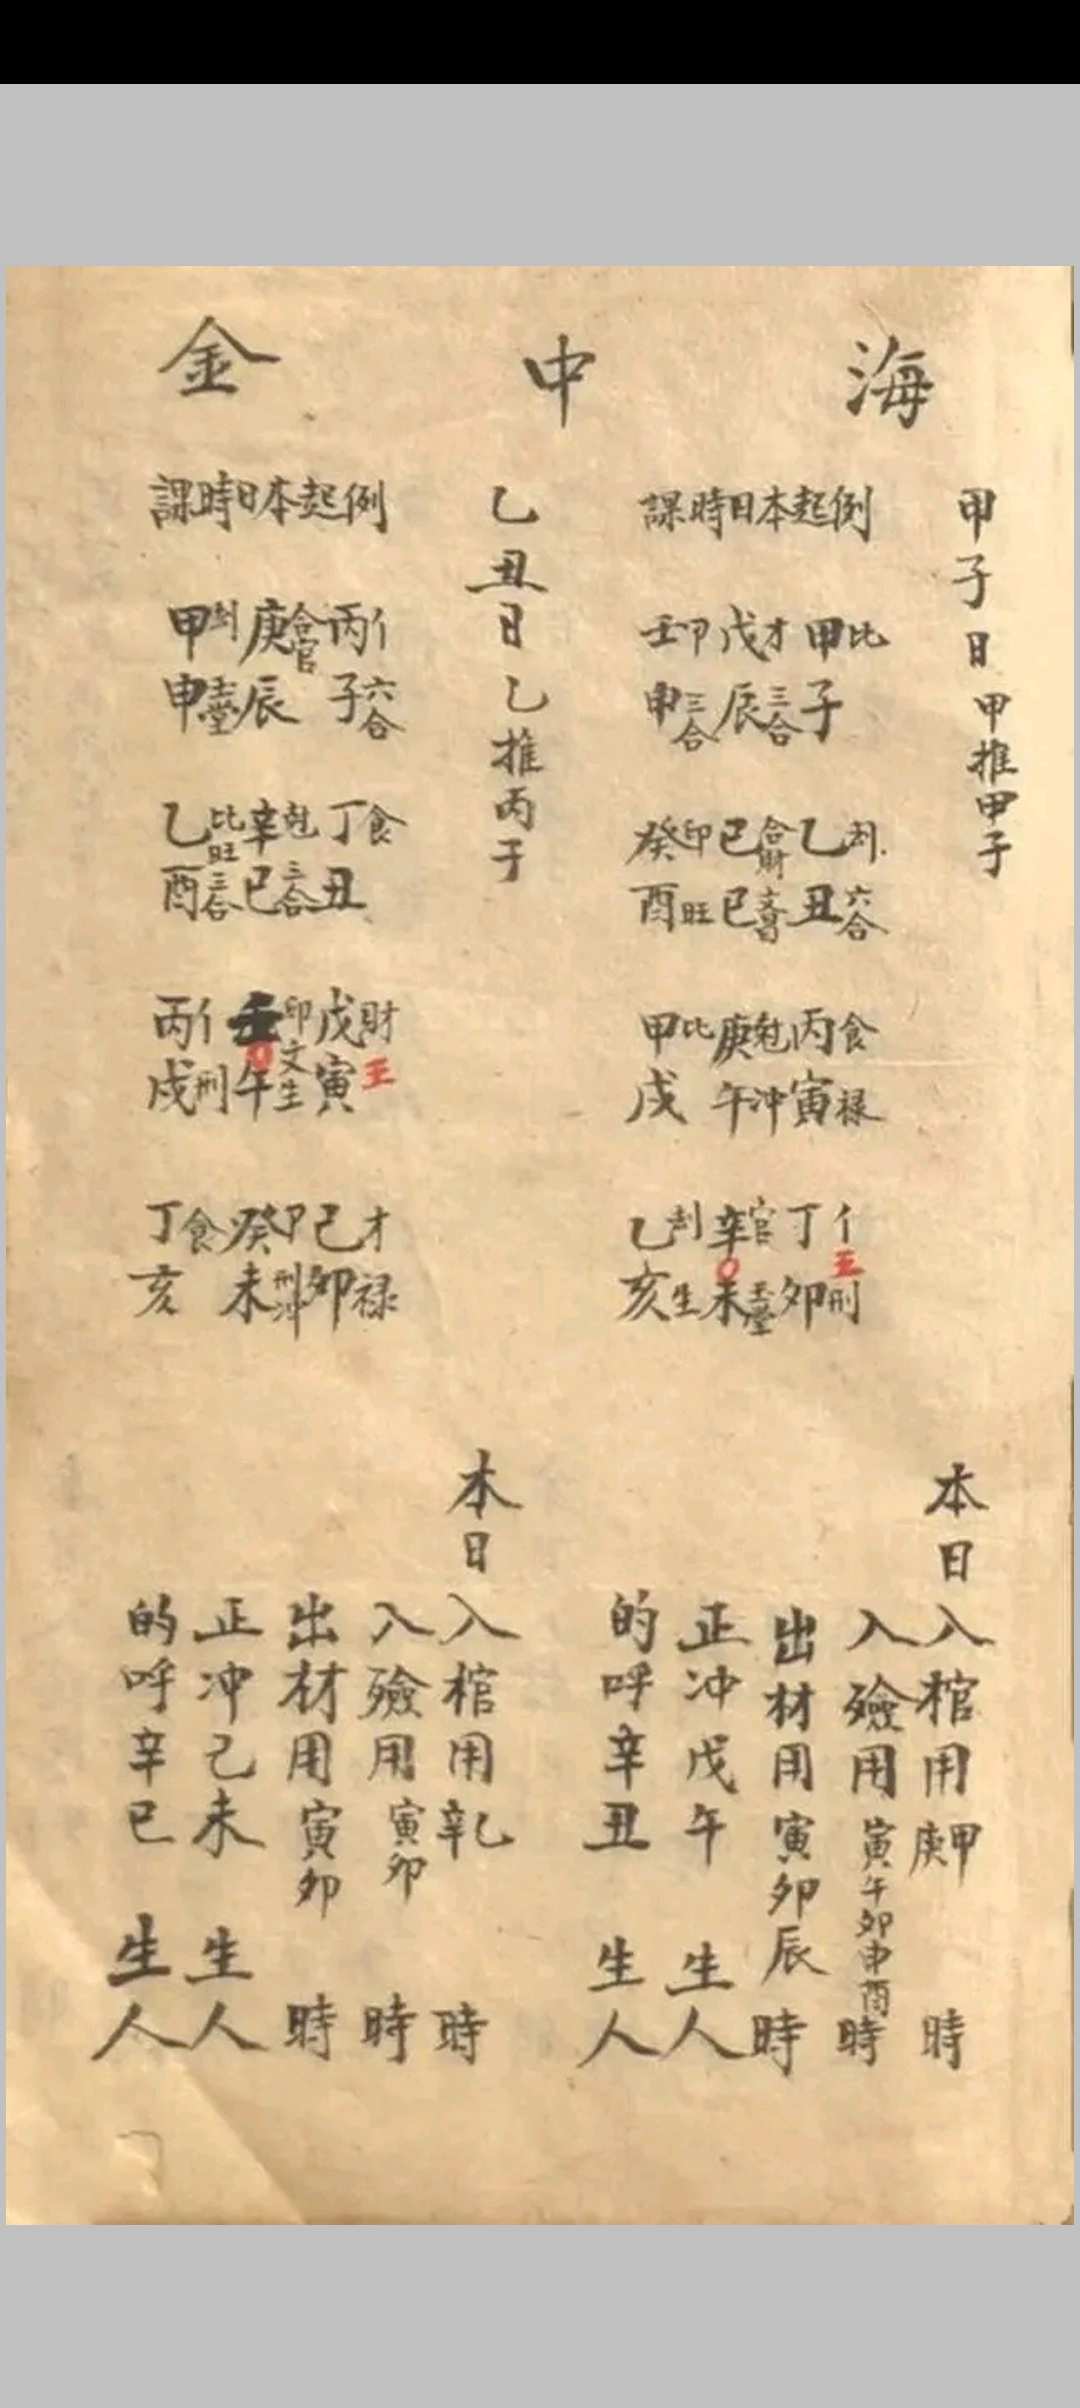 海中金
甲子日甲推甲子
例起本日時課
甲比 戊才 壬卩
子 三合 辰 三合 申
乙刦 己合財 癸印
丑六合 巳 酉旺
丙食 庚尅 甲比
寅祿 午冲 戌
丁亻 辛官 乙刦
王 〇
卯刑 未 亥生
本日入棺用甲庚時
入殮用寅午卯申酉時
出材用寅卯辰時
正冲戊午生人
的呼辛丑生人
乙丑日乙推丙子
例起本日時課
丙亻 庚合官 甲刦
子六合 辰 申
丁食 辛尅 乙比旺
丑 三合 巳 三合 酉
戊財 壬印 丙亻
王 〇
寅 文生 午 刑戌
己才 癸卩 丁食
卯祿 未刑冲 亥
本日入棺用乙辛時
入殮用寅卯時
出材用寅卯時
正冲己未生人
的呼辛巳生人